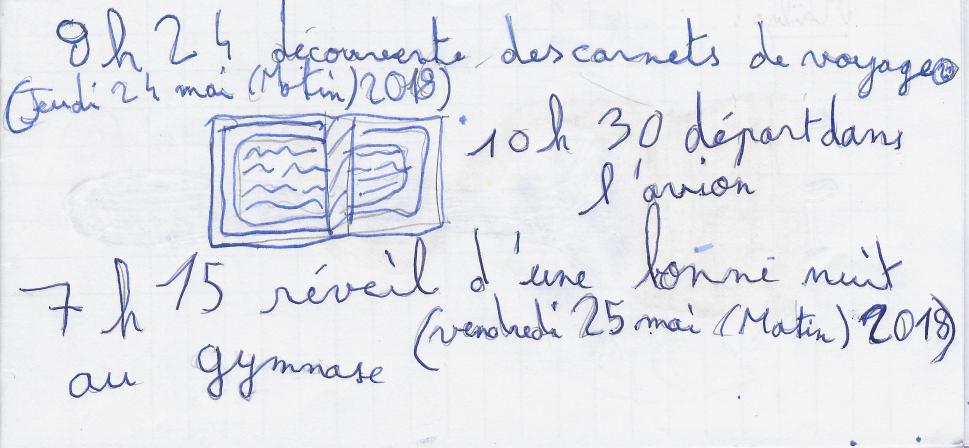 8 h 24 découverte des carnets de voyage
(Jeudi 24 mai (Matin) 2018)
10 h 30 départ dans
l'avion
7 h 15 réveil d'une bonne nuit
(vendredi 25 mai (Matin) 2018)
au gymnase